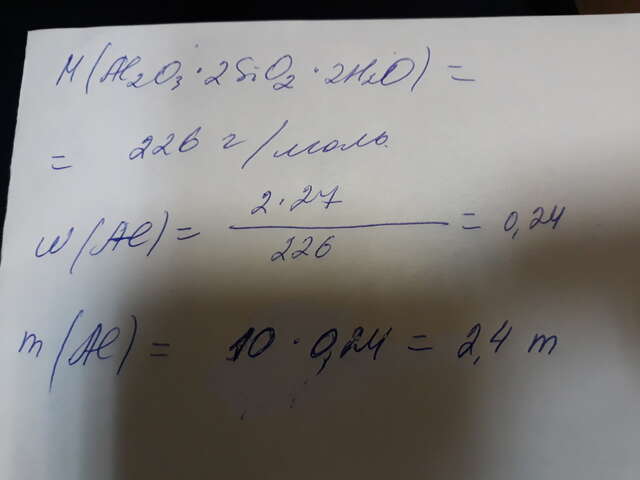 M(Al₂O₃·2SiO₂·2H₂O) =
= 226 г/моль.
w(Al) = 2·27 / 226 = 0,24
m(Al) = 10·0,24 = 2,4 т